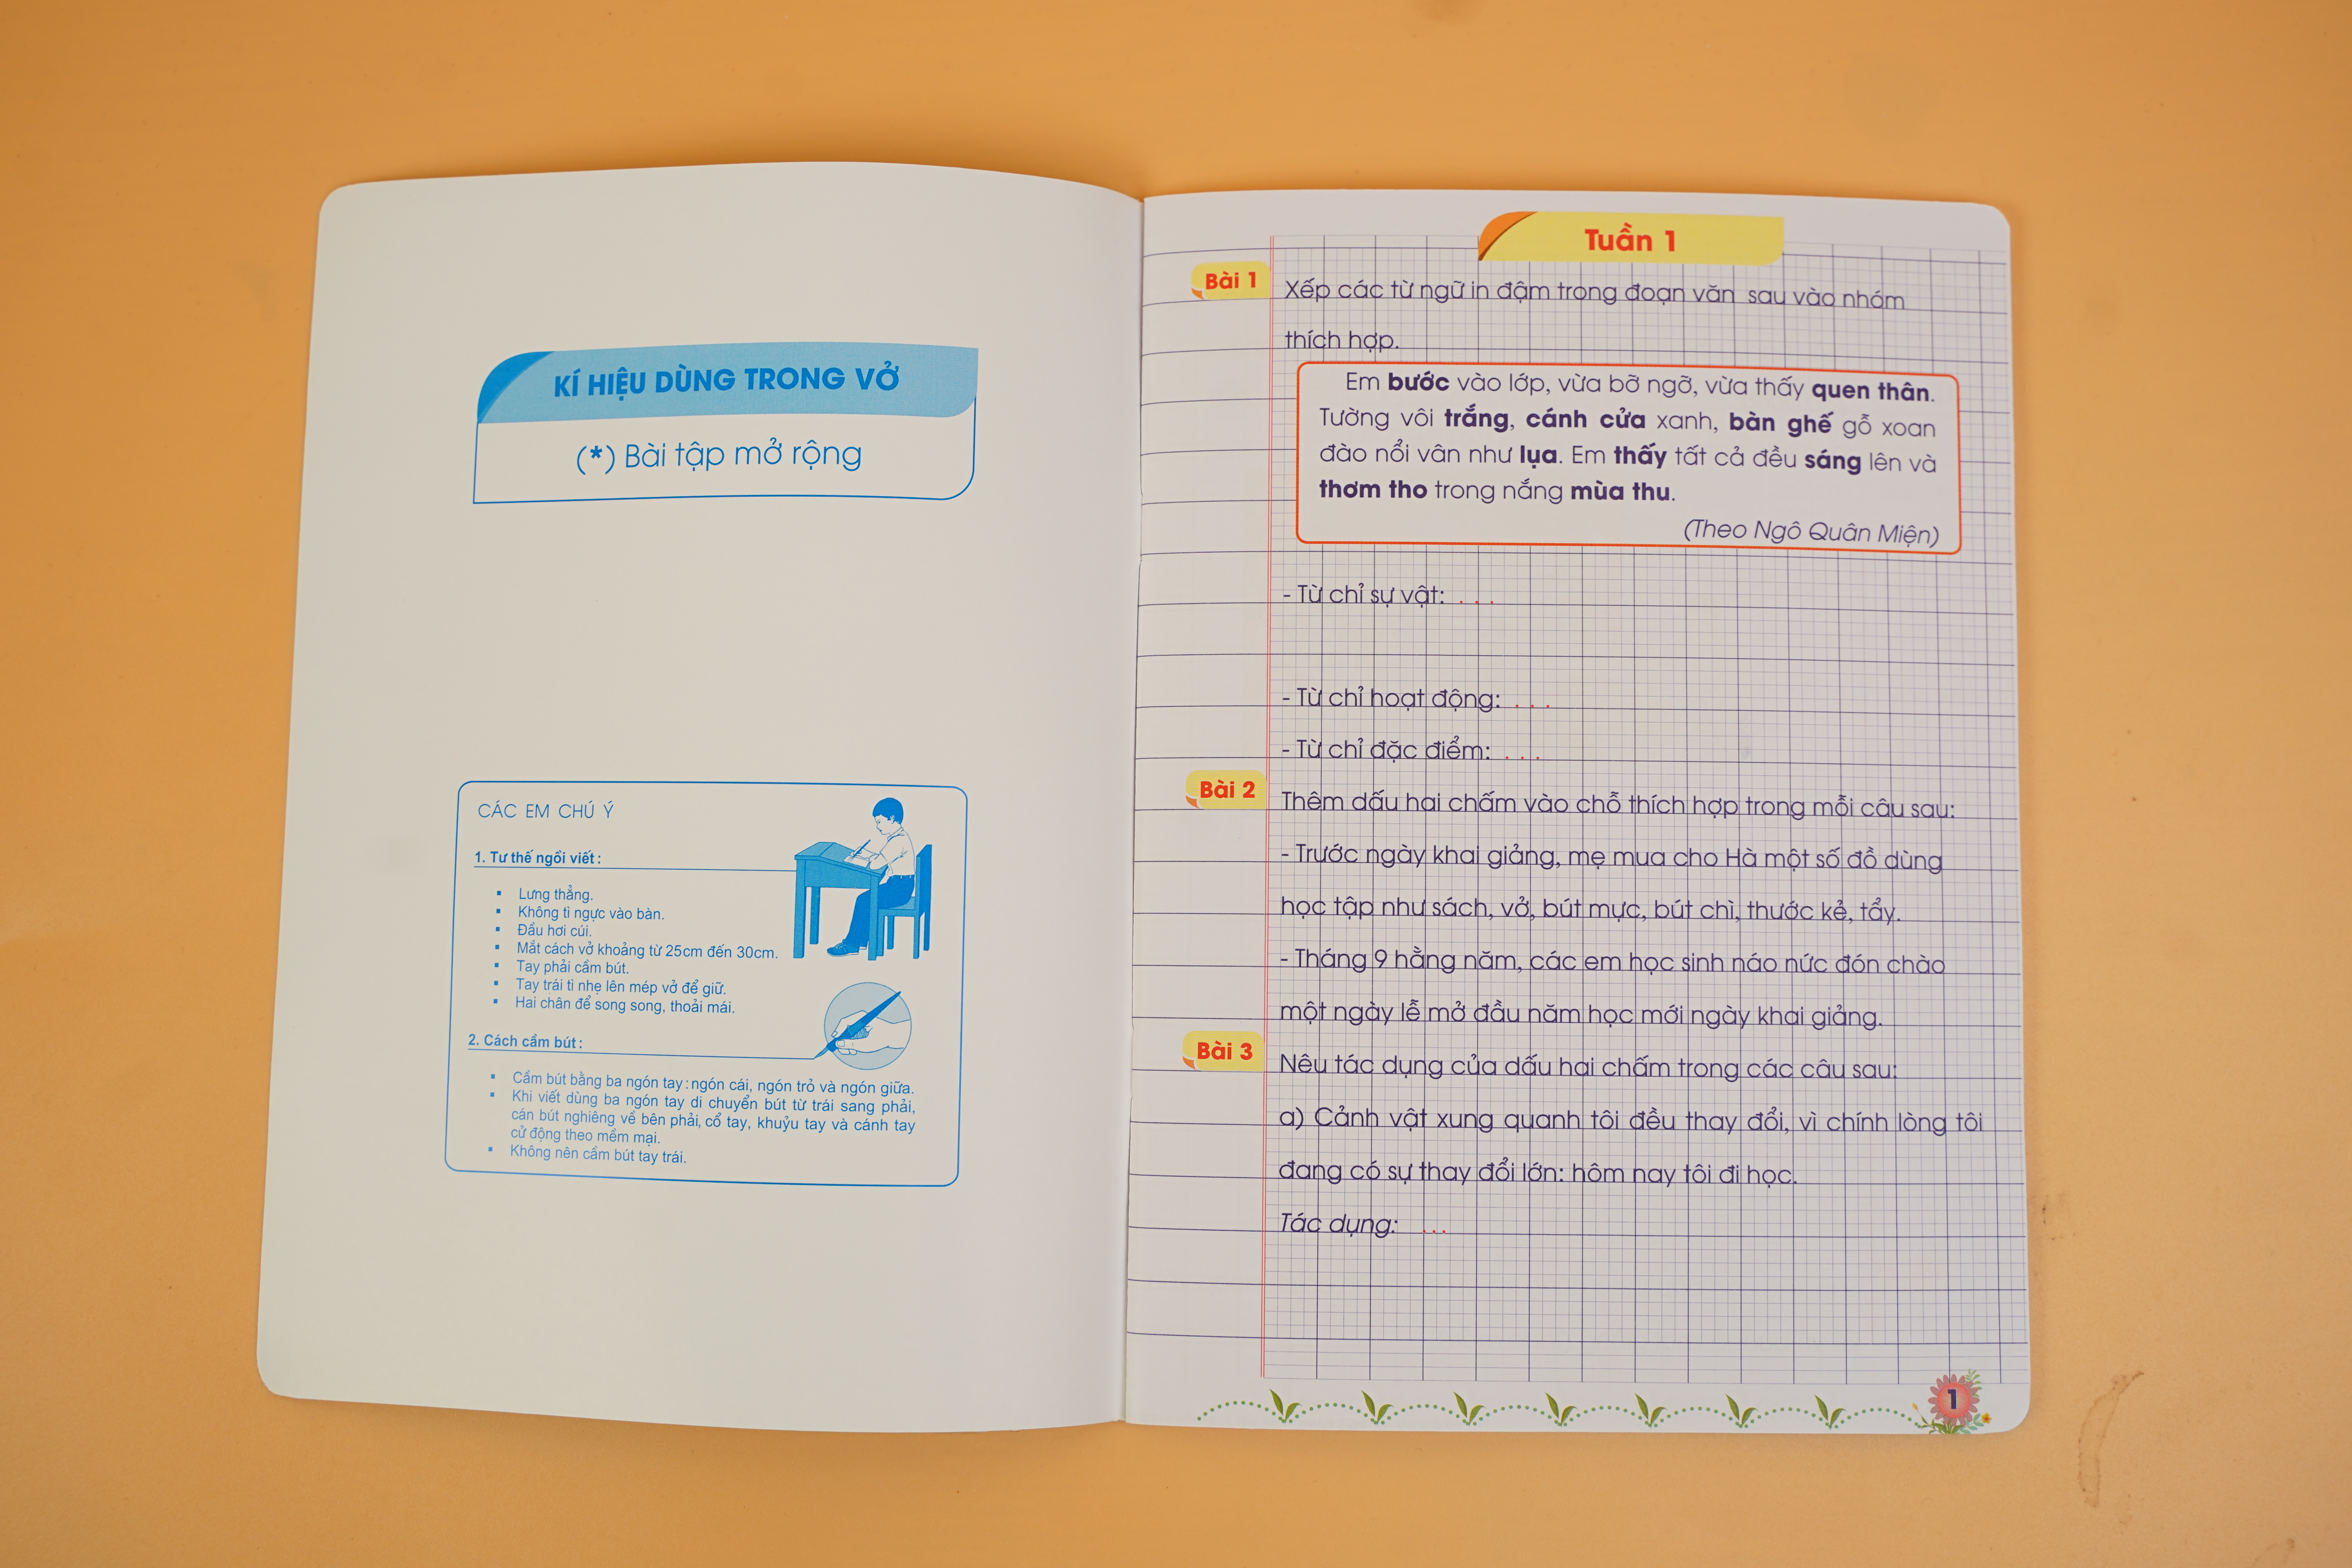 KÍ HIỆU DÙNG TRONG VỞ
(*) Bài tập mở rộng
CÁC EM CHÚ Ý
1. Tư thế ngồi viết :
▪ Lưng thẳng.
▪ Không tì ngực vào bàn.
▪ Đầu hơi cúi.
▪ Mắt cách vở khoảng từ 25cm đến 30cm.
▪ Tay phải cầm bút.
▪ Tay trái tì nhẹ lên mép vở để giữ.
▪ Hai chân để song song, thoải mái.
2. Cách cầm bút :
▪ Cầm bút bằng ba ngón tay : ngón cái, ngón trỏ và ngón giữa.
▪ Khi viết dùng ba ngón tay di chuyển bút từ trái sang phải,
cán bút nghiêng về bên phải, cổ tay, khuỷu tay và cánh tay
cử động theo mềm mại.
▪ Không nên cầm bút tay trái.
Tuần 1
Bài 1 Xếp các từ ngữ in đậm trong đoạn văn sau vào nhóm
thích hợp.
Em bước vào lớp, vừa bỡ ngỡ, vừa thấy quen thân.
Tường vôi trắng, cánh cửa xanh, bàn ghế gỗ xoan
đào nổi vân như lụa. Em thấy tất cả đều sáng lên và
thơm tho trong nắng mùa thu.
(Theo Ngô Quân Miện)
- Từ chỉ sự vật: . . .
- Từ chỉ hoạt động: . . .
- Từ chỉ đặc điểm: . . .
Bài 2 Thêm dấu hai chấm vào chỗ thích hợp trong mỗi câu sau:
- Trước ngày khai giảng, mẹ mua cho Hà một số đồ dùng
học tập như sách, vở, bút mực, bút chì, thước kẻ, tẩy.
- Tháng 9 hằng năm, các em học sinh náo nức đón chào
một ngày lễ mở đầu năm học mới ngày khai giảng.
Bài 3 Nêu tác dụng của dấu hai chấm trong các câu sau:
a) Cảnh vật xung quanh tôi đều thay đổi, vì chính lòng tôi
đang có sự thay đổi lớn: hôm nay tôi đi học.
Tác dụng: ...
1